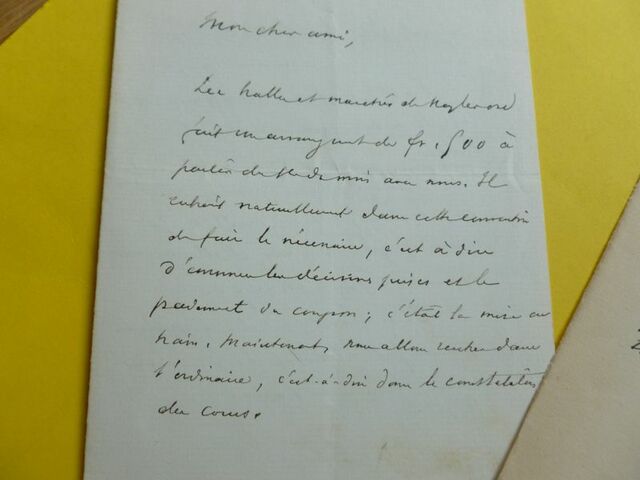 Mon cher ami,
Les halles et marchés de
fait un arrangement de fr. 500 à
partir de ce mois avec nous. Il
entrait naturellement dans cette convention
de faire le nécessaire, c'est à dire
d'annoncer les décisions prises et le
paiement du coupon; c'était la mise en
train. Maintenant, nous allons rentrer dans
l'ordinaire, c'est-à-dire dans la constatation
des cours.